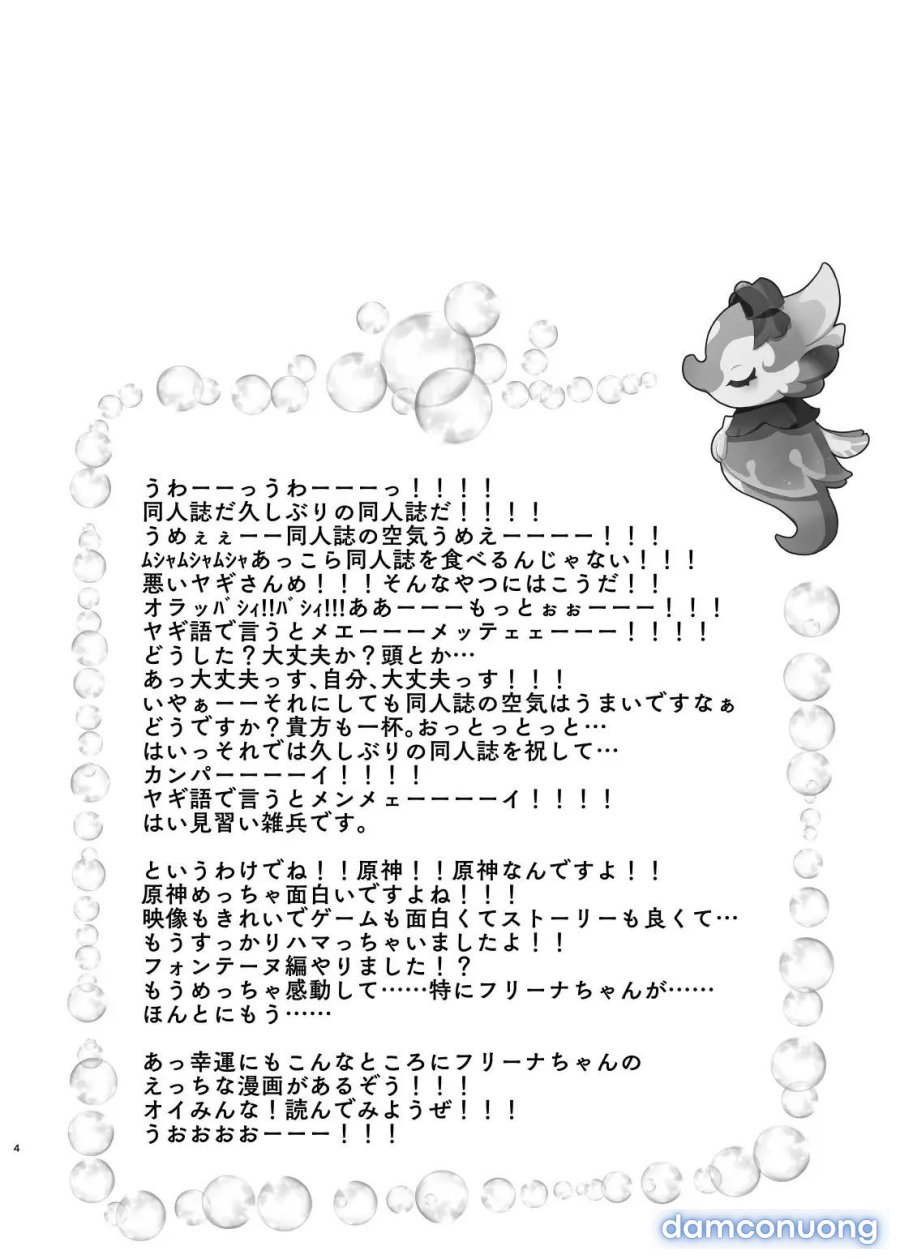 うわーーっうわーーーっ！！！！
同人誌だ久しぶりの同人誌だ！！！！
うめぇぇーー同人誌の空気うめえーーーー！！！
ﾑｼｬﾑｼｬﾑｼｬあっこら同人誌を食べるんじゃない！！！
悪いヤギさんめ！！！そんなやつにはこうだ！！
オラッﾊﾞｼｨ!!ﾊﾞｼｨ!!!ああーーーもっとぉぉーーー！！！
ヤギ語で言うとメエーーーメッテェェーーー！！！！
どうした？大丈夫か？頭とか…
あっ大丈夫っす､自分､大丈夫っす！！！
いやぁーーそれにしても同人誌の空気はうまいですなぁ
どうですか？貴方も一杯｡おっとっとっと…
はいっそれでは久しぶりの同人誌を祝して…
カンパーーーーイ！！！！
ヤギ語で言うとメンメェーーーーイ！！！！
はい見習い雑兵です。
というわけでね！！原神！！原神なんですよ！！
原神めっちゃ面白いですよね！！！
映像もきれいでゲームも面白くてストーリーも良くて…
もうすっかりハマっちゃいましたよ！！
フォンテーヌ編やりました！？
もうめっちゃ感動して……特にフリーナちゃんが……
ほんとにもう……
あっ幸運にもこんなところにフリーナちゃんの
えっちな漫画があるぞう！！！
オイみんな！読んでみようぜ！！！
うおおおおーーー！！！
4
damconuong